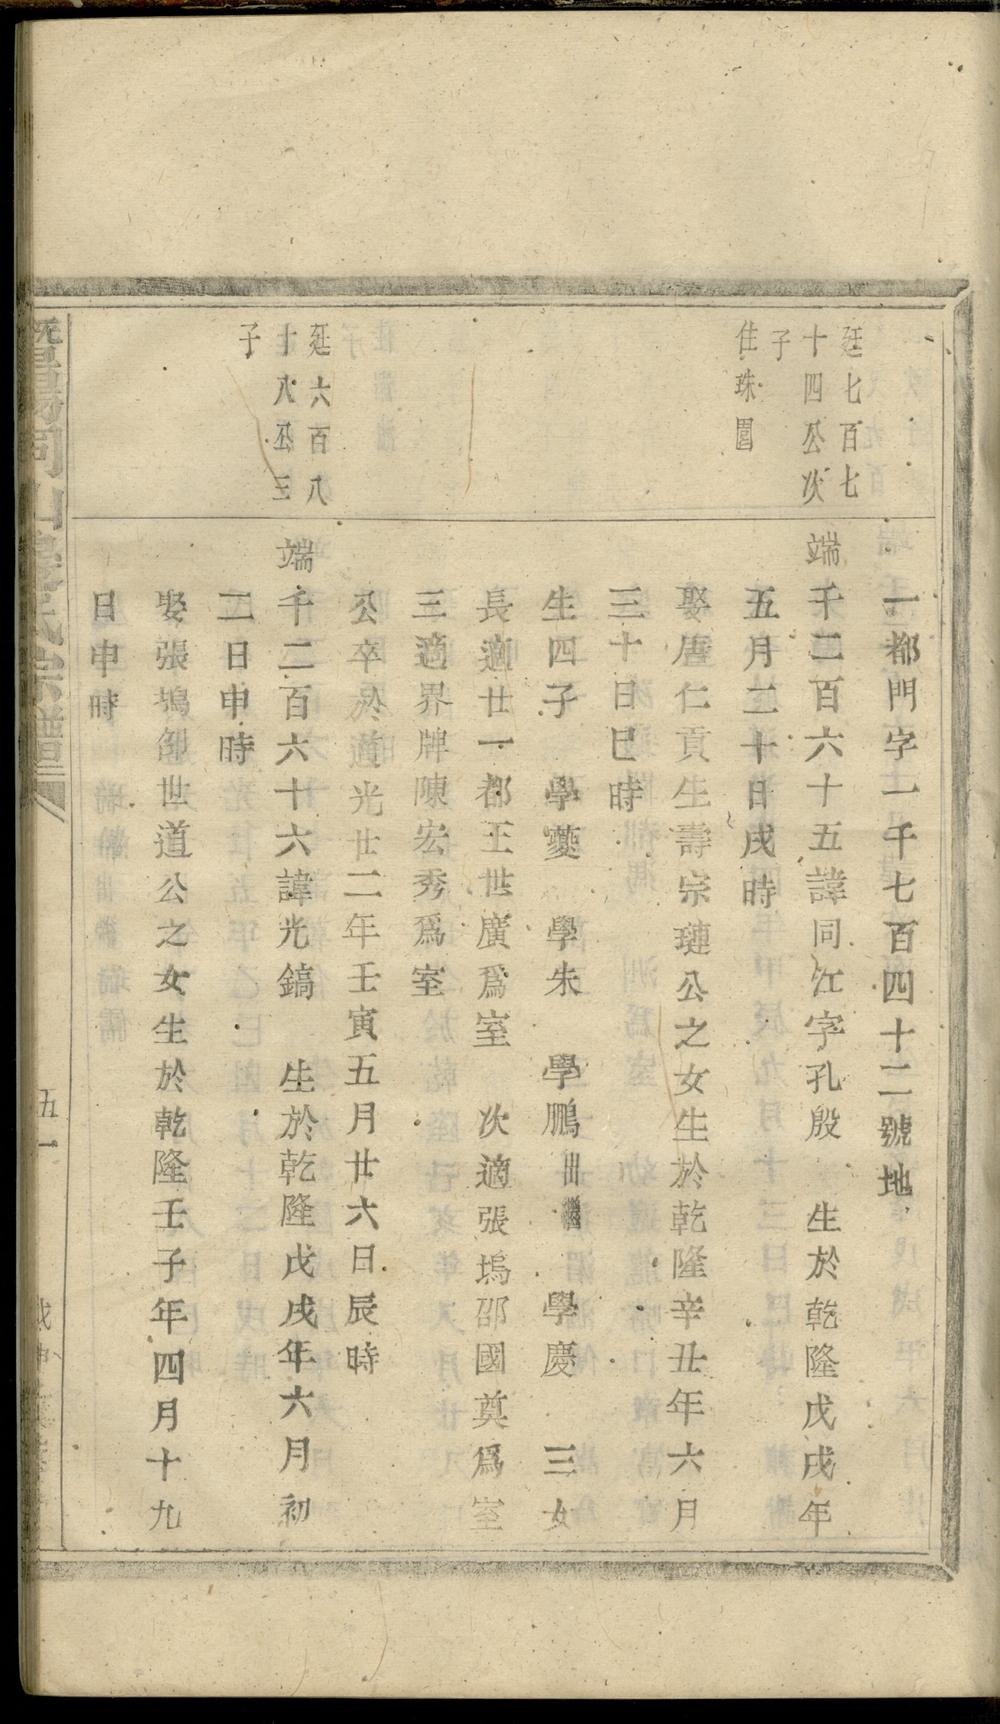 一都門字一千七百四十二號地
廷七百七
十四公次
子
住珠園
端千二百六十五諱同江字孔殷　生於乾隆戊戌年
五月二十日戌時
娶唐仁貢生壽宗璉公之女生於乾隆辛丑年六月
三十日巳時
生四子　學夔　學朱　學鵬出繼　學慶　三女
長適廿一都王世廣爲室　次適張塢邵國奠爲室
三適界牌陳宏秀爲室
公卒於道光廿二年壬寅五月廿六日辰時
廷六百八
十八公三
子
端千二百六十六諱光鎬　生於乾隆戊戌年六月初
二日申時
娶張塢邵世道公之女生於乾隆壬子年四月十九
日申時
暨陽同山 氏宗譜
五一